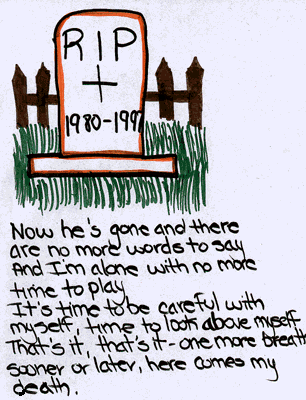 RIP
1980-199
Now he's gone and there
are no more words to say
And I'm alone with no more
time to play
It's time to be careful with
myself, time to look above myself
That's it, that's it - one more breath
sooner or later, here comes my
death.